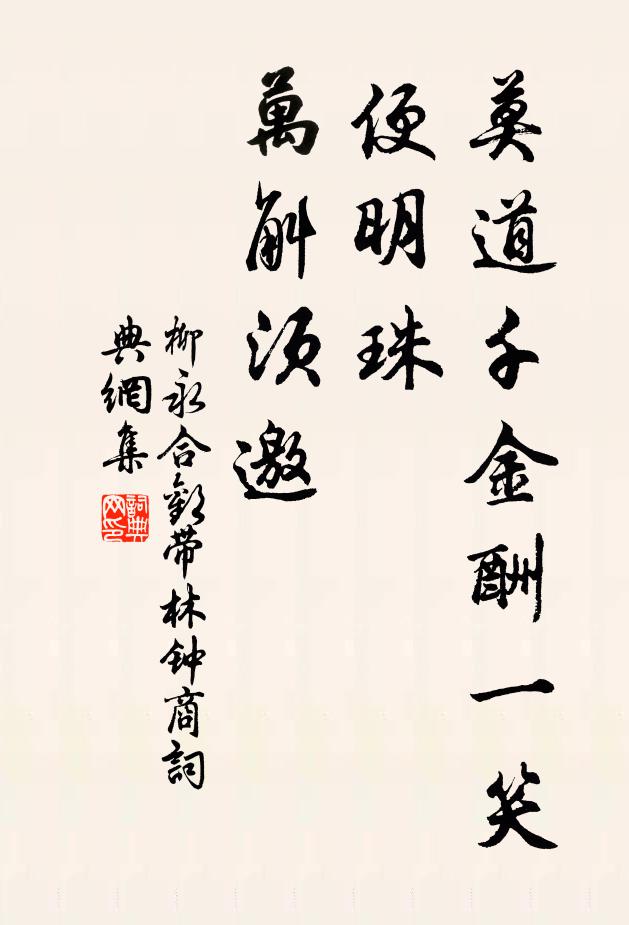 莫道千金酬一笑
便明珠
萬斛須邀
柳永合歡帶林鈡商詞
典網集
詞典
网印